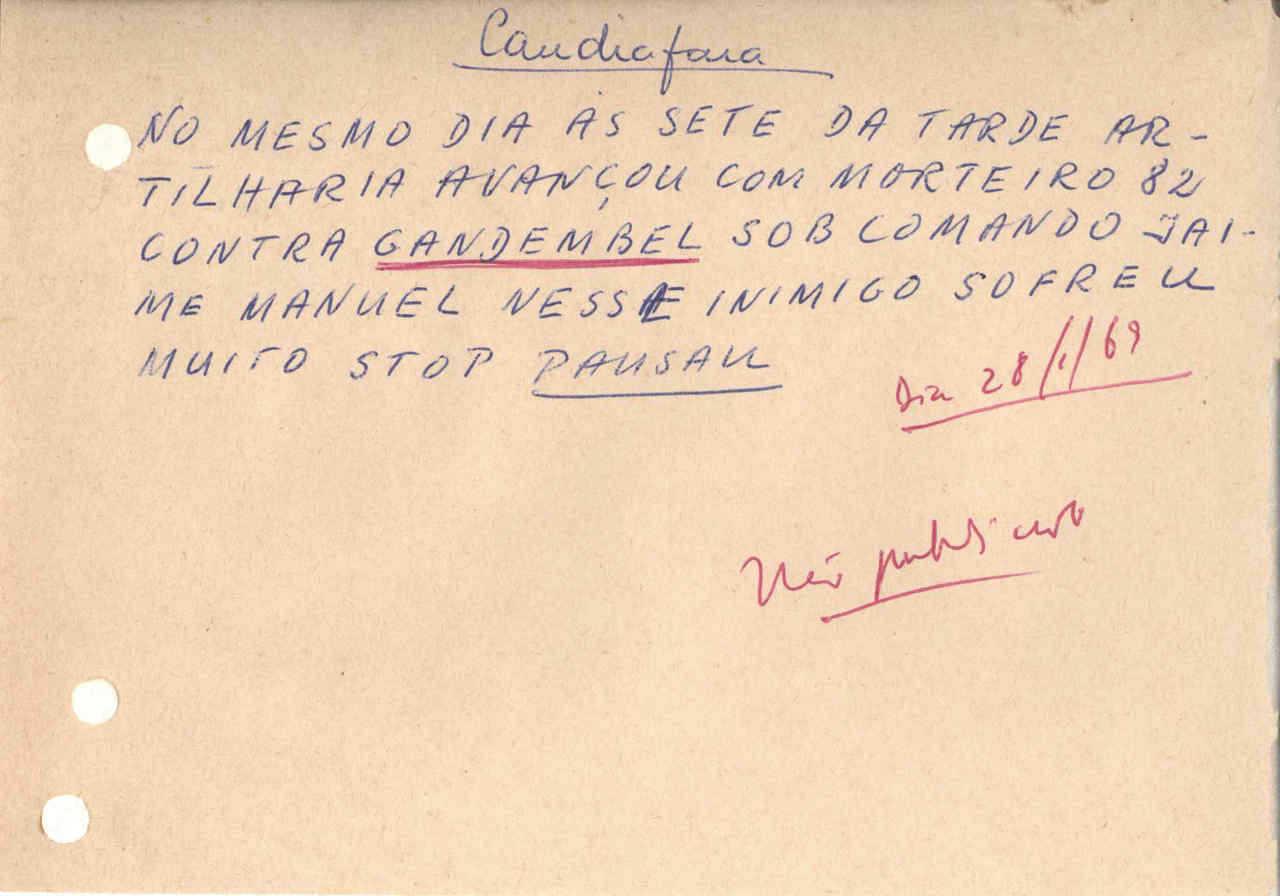 Candiafara
NO MESMO DIA ÀS SETE DA TARDE AR-
TILHARIA AVANÇOU COM MORTEIRO 82
CONTRA GANDEMBEL SOB COMANDO JAI-
ME MANUEL NESSE INIMIGO SOFREU
MUITO STOP PANSAU
Dia 28/1/69
Não publicado